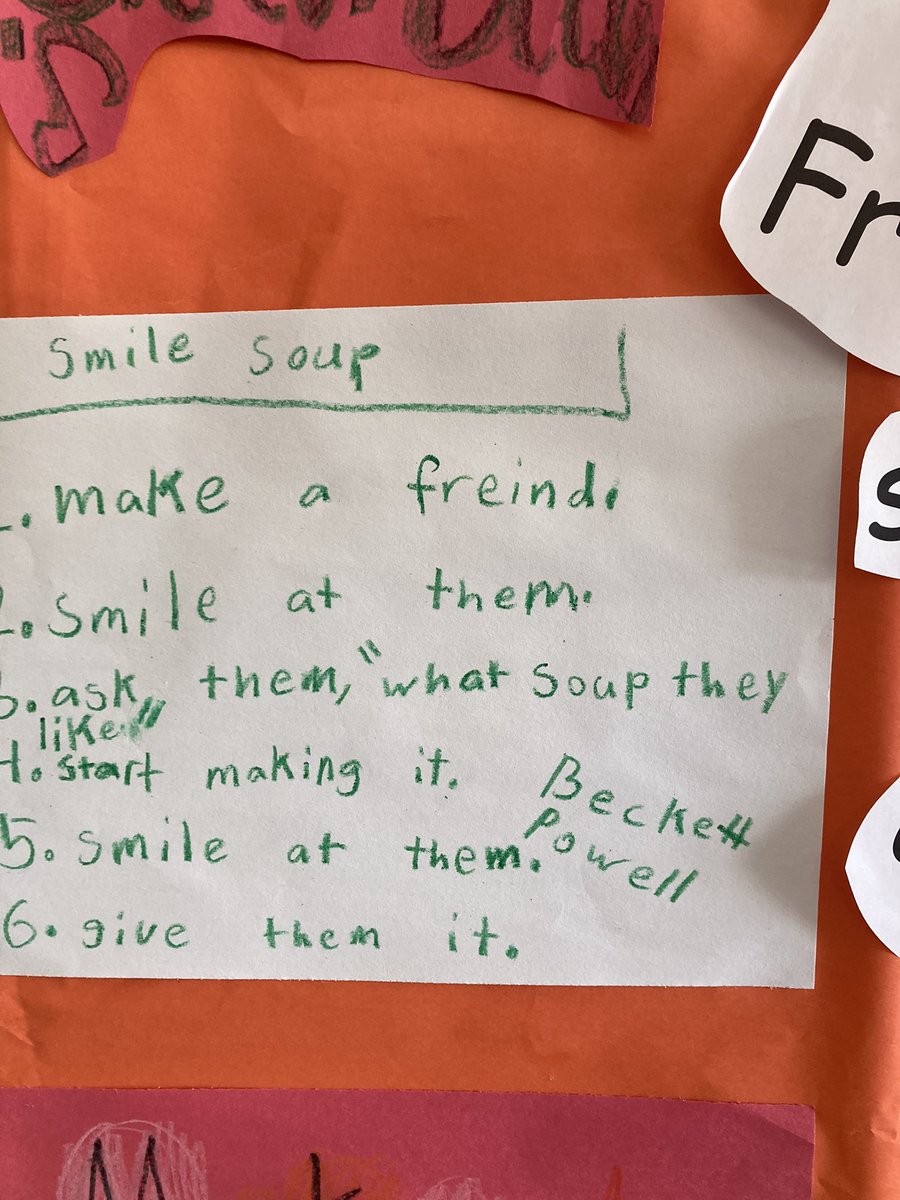 Fr
s
Smile Soup
1. make a freind.
2. smile at them.
3. ask them, "what soup they
like"
4. start making it.
5. smile at them.
6. give them it.
Beckett
Powell